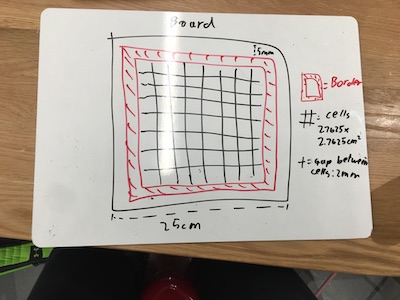 Board
5mm
= Border
# = cells
2.7625x
2.7625cm²
+ = Gap between
cells: 2mm
25cm